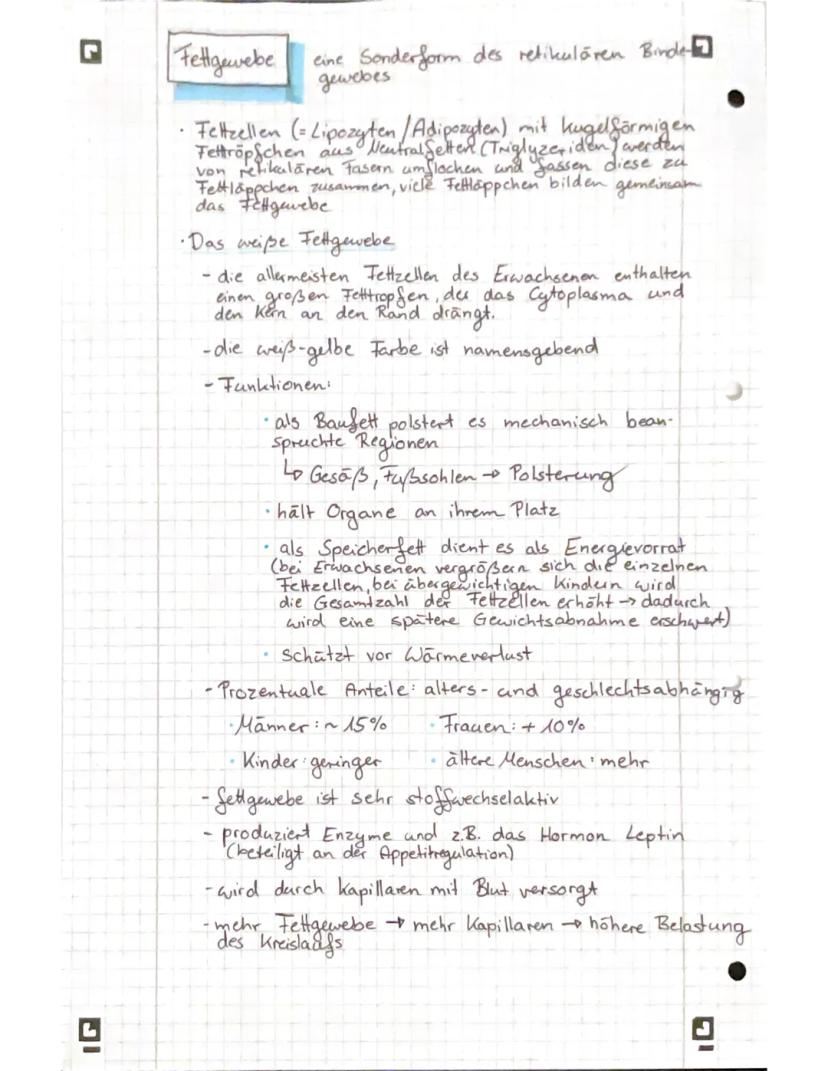 Fettgewebe eine Sonderform des retikulären Binde-
gewebes
· Fettzellen (= Lipozyten / Adipozyten) mit kugelförmigen
Fettröpfchen aus Neutralfetten (Triglyzeriden) werden
von retikulären Fasern umflochen und fassen diese zu
Fettläppchen zusammen, viele Fettläppchen bilden gemeinsam
das Fettgewebe
· Das weiße Fettgewebe
- die allermeisten Fettzellen des Erwachsenen enthalten
einen großen Fetttropfen, der das Cytoplasma und
den Kern an den Rand drängt.
- die weiß-gelbe Farbe ist namensgebend
- Funktionen:
· als Baufett polstert es mechanisch bean-
spruchte Regionen
↳ Gesäß, Fußsohlen → Polsterung
· hält Organe an ihrem Platz
· als Speicherfett dient es als Energievorrat
(bei Erwachsenen vergrößern sich die einzelnen
Fettzellen, bei übergewichtigen Kindern wird
die Gesamtzahl der Fettzellen erhöht → dadurch
wird eine spätere Gewichtsabnahme erschwert)
· schützt vor Wärmeverlust
- Prozentuale Anteile: alters- und geschlechtsabhängig
· Männer: ~ 15% · Frauen: + 10%
· Kinder: geringer · ältere Menschen: mehr
- fettgewebe ist sehr stoffwechselaktiv
- produziert Enzyme und z.B. das Hormon Leptin
(beteiligt an der Appetitregulation)
- wird durch Kapillaren mit Blut versorgt
- mehr Fettgewebe → mehr Kapillaren → höhere Belastung
des Kreislaufs